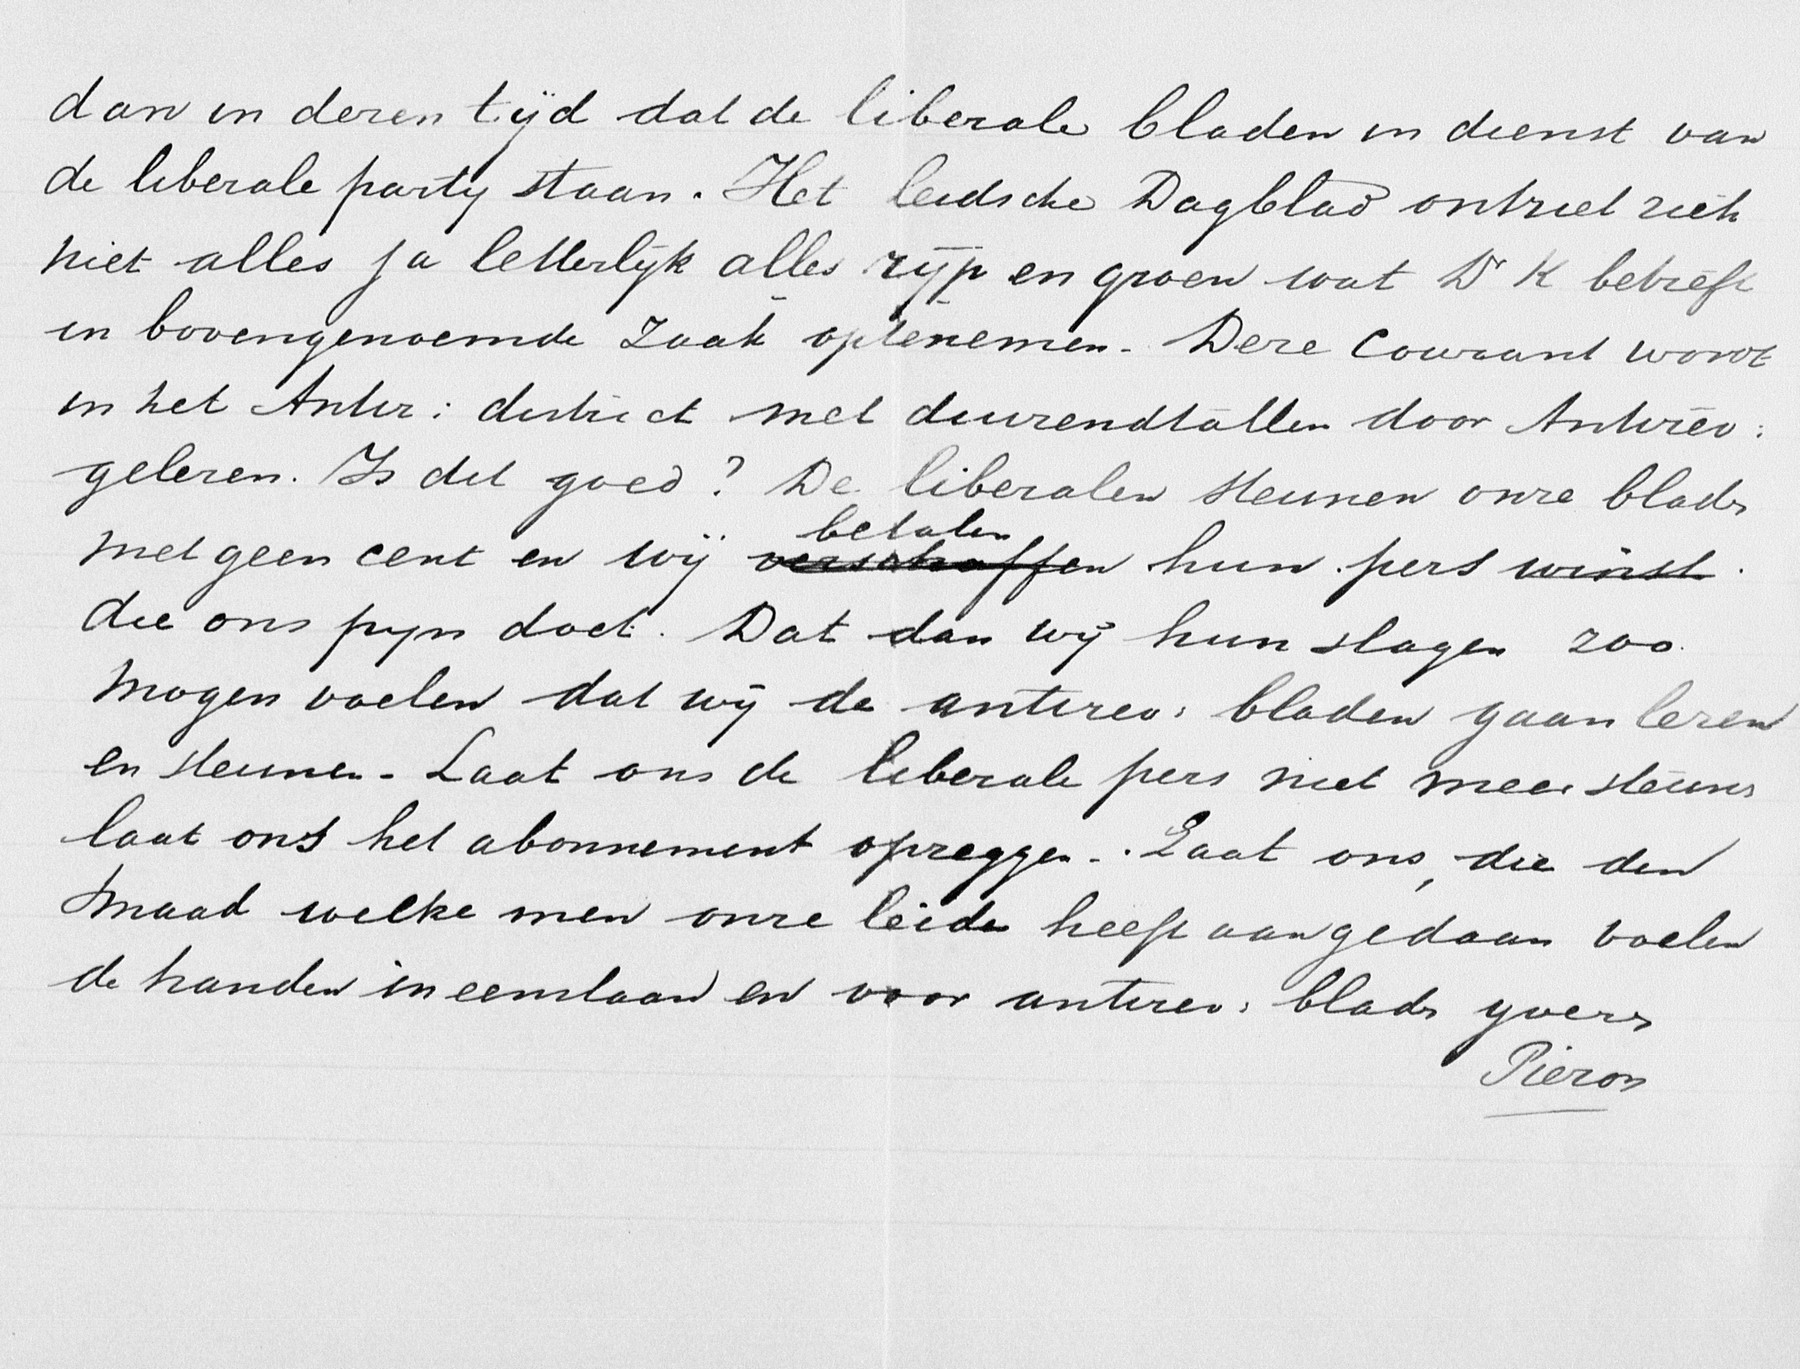 dan in dezen tijd dat de liberale bladen in dienst van
de liberale party staan. Het leidsche Dagblad ontziet zich
niet alles ja letterlijk alles rijp en groen wat Dr K betreft
in bovengenoemde zaak optenemen. Deze Courant wordt
in het Antir: district met duizendtallen door Antirev:
gelezen. Is dit goed? De liberalen steunen onze bladn
met geen cent en wij betalen verschaffen hun pers winst.
die ons pyn doet. Dat dan wij hun slagen zoo
mogen voelen dat wij de antirev: bladen gaan lezen
en steunen. Laat ons de liberale pers niet meer steunen
laat ons het abonnement opzeggen. Laat ons, die den
smaad welke men onze leider heeft aangedaan voelen
de handen ineenslaan en voor antirev: bladn yveren